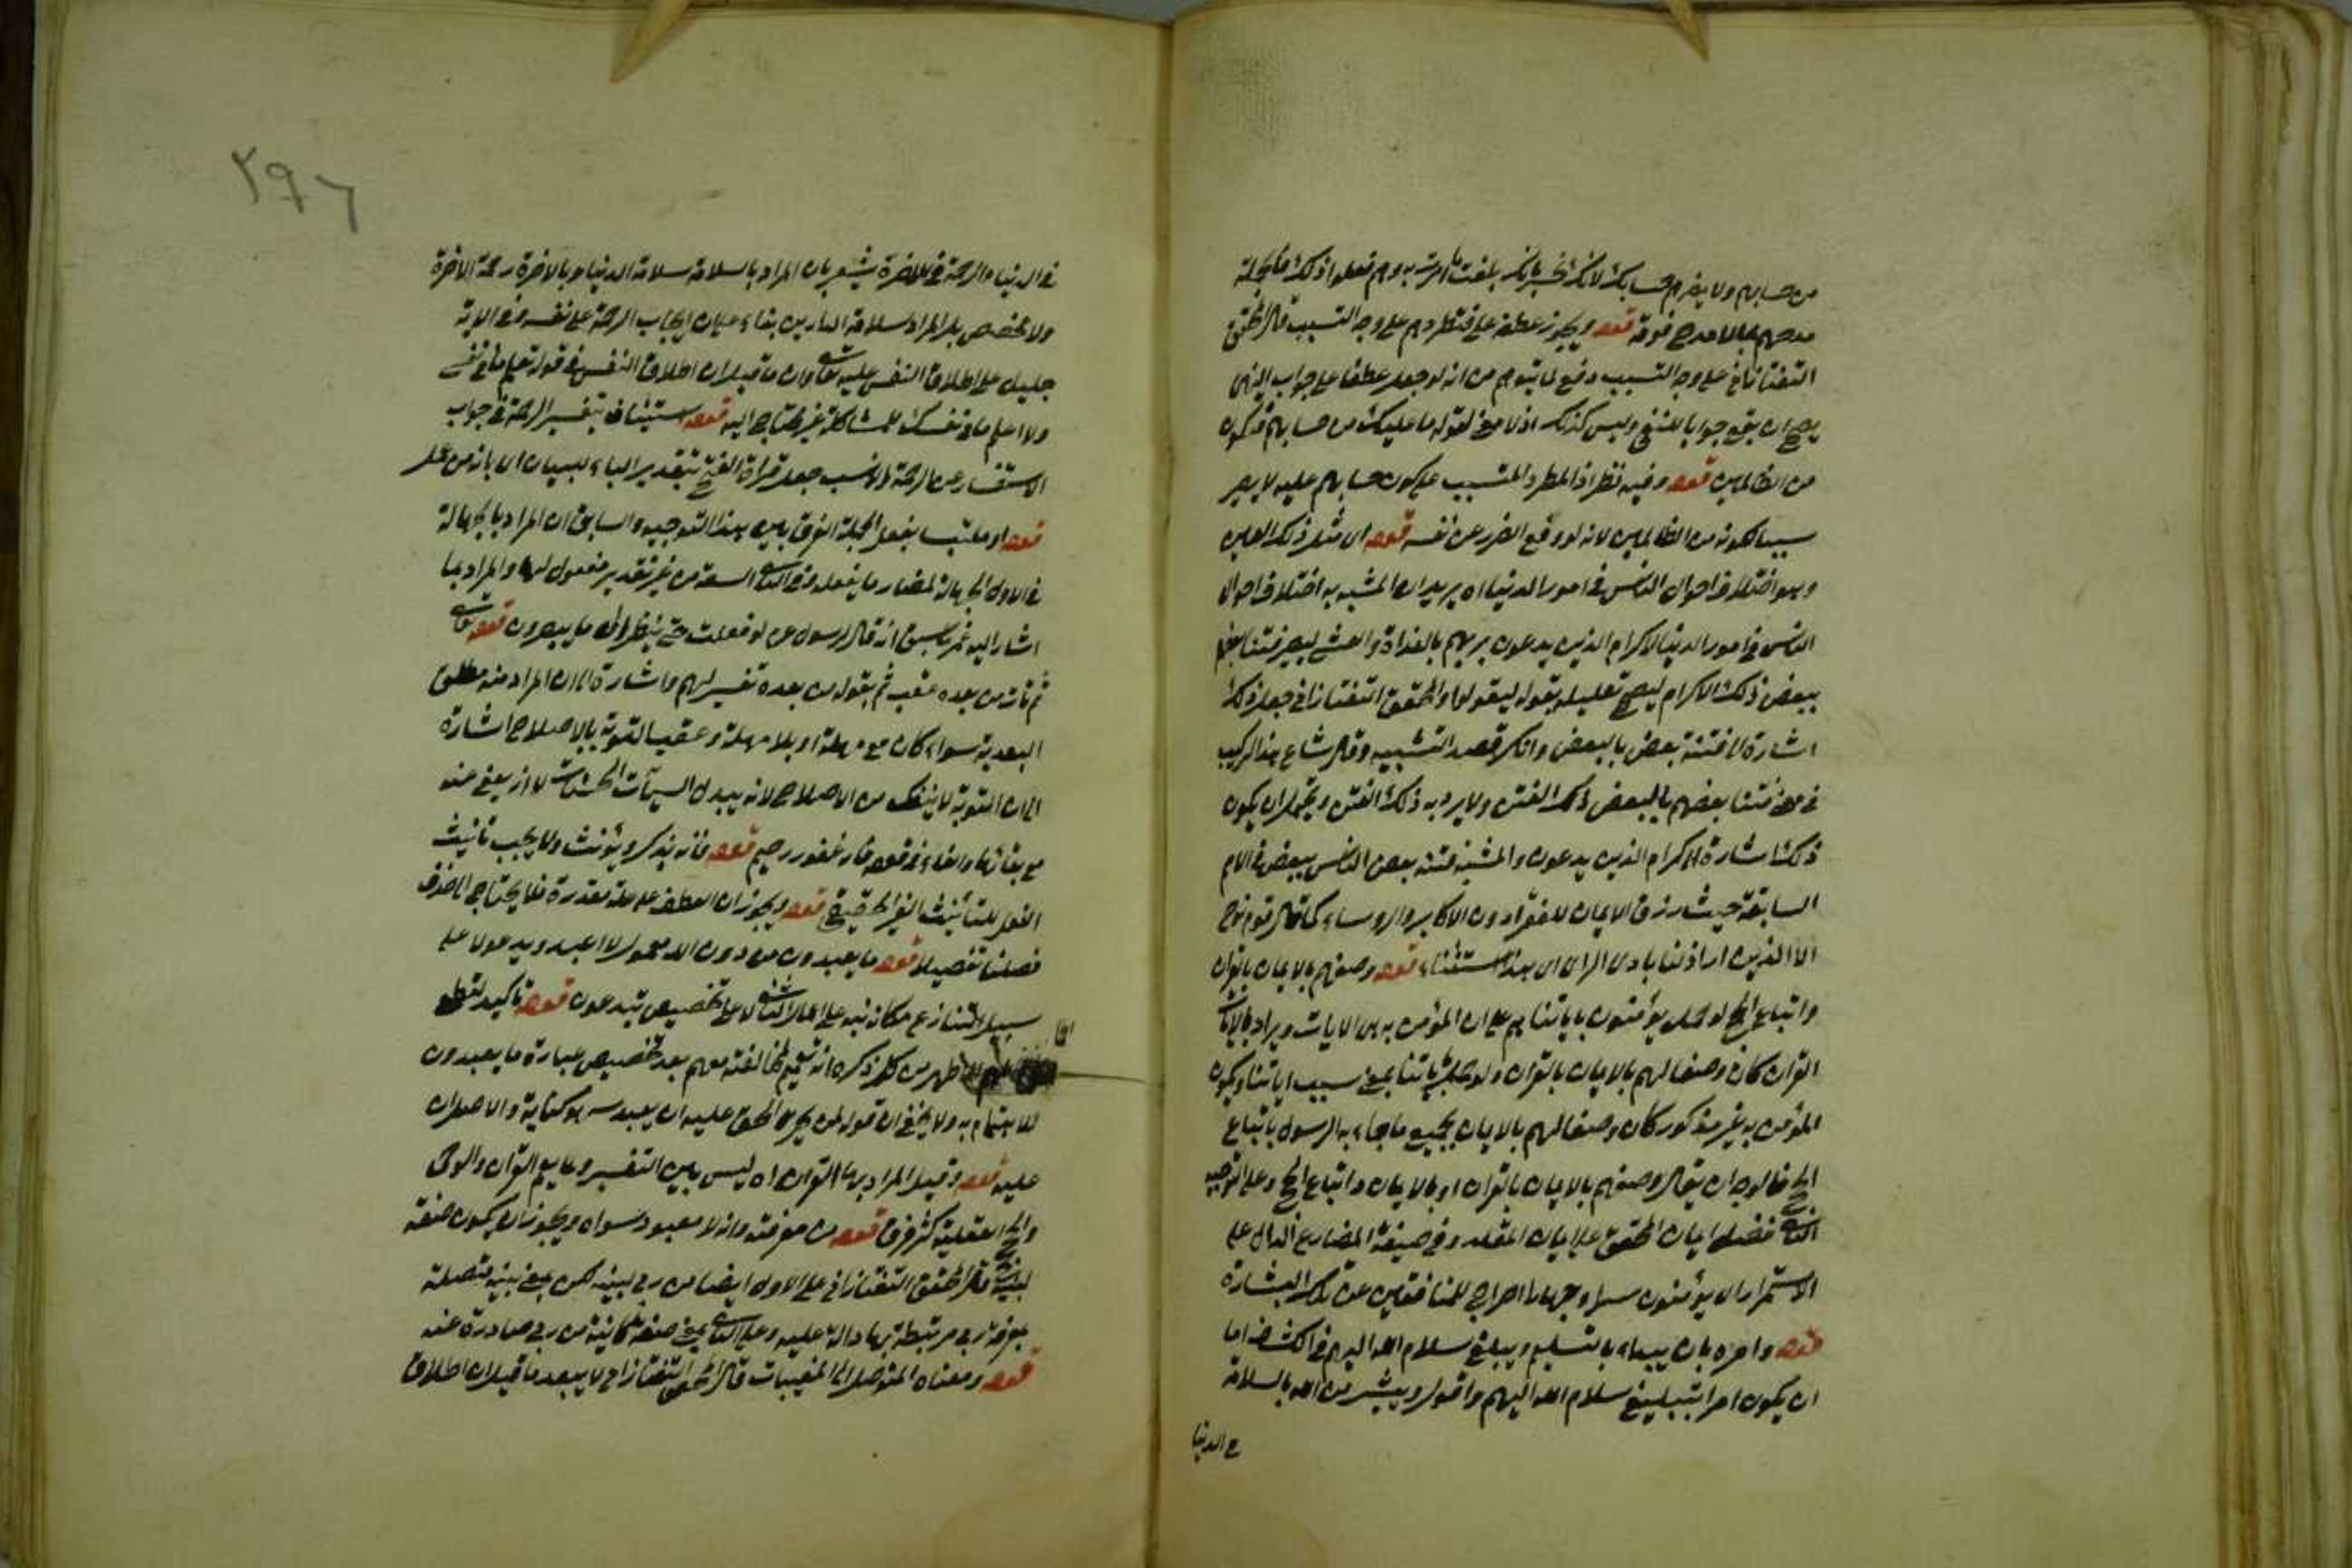 من حسابهم ولا يضرهم حسابك لانك تخبر بانك بلغت ما امرت به وهم فعلوا ذلك فالجملة
مدحهم بما لا مدح فوقه قوله ويجوز عطفه على فتطردهم على وجه التسبب قال المحقق
التفتازاني على وجه التسبب دفع لما يتوهم من انه لو جعل عطفا على جواب النهي
يصح ان يقع جوابا للنفي وليس كذلك اذ لا معنى لقوله ما عليك من حسابهم فتكون
من الظالمين قوله وفيه نظر اذ الطرد المتسبب على كون حسابهم عليه لا يصير
سببا لكونه من الظالمين لانه لو وقع الضرر عن نفسه قوله اي مثل ذلك الفتن
وهو اختلاف احوال الناس في امور الدنيا اه يريد ان المشبه به اختلاف احوال
الناس في امور الدنيا لاكرام الذين يدعون ربهم بالغداة والعشي ليصير فتنا بعضهم
ببعض ذلك الاكرام ليصح تعليله بقوله ليقولوا والمحقق التفتازاني جعل ذلك
اشارة الى فتنة بعض بالبعض وانكر قصد التشبيه وقال شاع هذا التركيب
في معنى فتنا بعضهم بالبعض ذلك الفتن ولا يراد به ذلك الفتن ويحتمل ان يكون
ذلك اشارة الى اكرام الذين يدعون والمشبه فتنة بعض الناس ببعض في الامم
السابقة حيث رزق الايمان للفقراء دون الاكابر والرؤساء كما قال قوم نوح
الا الذين اراذلنا بادي الراي اي هذا استثناء قوله وصفهم بالايمان بالقران
واتباع الحجج يؤمنون باياتنا على ان المؤمن به هي الايات ويراد بالايات
القران كان وصفا لهم بالايمان بالقران ولو جعل باياتنا بمعنى بسبب اياتنا ويكون
المؤمن به غير مذكور كان وصفا لهم بالايمان بجميع ما جاء به الرسول باتباع
الحجج فالوجه ان يقال وصفهم بالايمان بالقران او بالايمان واتباع الحجج وعلى التوجيه
الثاني فضل ايمان المحقق على ايمان المقلد وفي صيغة المضارع الدال على
الاستمرار اي يؤمنون سرا وجهارا اخراج للمنافقين عن تلك البشارة
قوله وامره بان يبداء بالتسليم ويبلغ سلام الله اليهم في الكشاف اما
ان يكون امرا بتبليغ سلام الله اليهم واقول ويبشر من الله بالسلامة
في الدنيا
٢٩٦
في الدنيا والرحمة في الاخرة يشعر بان المراد بالسلامة سلامة الدنيا وبالاخرة رحمة الاخرة
ولا تخصص بل المراد سلامة الدارين بقاء على ان ايجاب الرحمة على نفسه في الاية
دليل على اطلاق النفس عليه تعالى وان ما قيل ان اطلاق النفس في قوله تعلم ما في نفسي
ولا اعلم ما في نفسك للمشاكلة غير محتاج اليه قوله استيناف بتفسير الرحمة في جواب
الاستفسار عن الرحمة والانسب جعل قراءة الفتح بتقدير الباء لبيان اي بانه من عمل
قوله او ملتبسا بفعل الجهلة الفرق بين هذا التوجيه والسابق ان المراد بالجهالة
في الاول الجهالة لمضار ما يفعله وفي الثاني السفه من غير تقدير مفعول لها والمراد بما
اشار اليه عمر ما سبق انه قال للرسول عم لو فعلت حتى ينظر الى ما يصيرون قوله تعالى
ثم تاب من بعده عقب ثم بقوله من بعده تفسير لهم واشارة الى ان المراد منه مطلق
البعدية سواء كان مع مهلة او بلا مهلة وعقب التوبة بالاصلاح اشارة
الى ان التوبة لا ينفك من الاصلاح لانه يبدل السيئات الحسنات لا انه يعفى عنه
مع بقائها قوله فانه غفور رحيم قوله فانه يذكر ويؤنث ولا يجب تانيث
الفعل للتأنيث الغير الحقيقي قوله ويجوز ان العطف على علة مقدرة فلا يحتاج الى حذف
فصلنا تفصيلا قوله ما يعبدون من دون الله معمول لا اعبد ويدعون على
سبيل التنازع مكانه نبه على اعمال الثاني لا على تخصيص تدعون قوله تاكيد لقطع
اطماعهم الاظهر من كل ذكره انه تعميم لمخالفته معهم بعد تخصيص عبارة ما يعبدون
للاهتمام به ولا يخفى ان قوله لمن تحرى الحق عليه ان يعبد
عليه قوله وقيل المراد بها القران اه ليس بين التفسير وما يعم القران والوحي
والحجج العقلية كثير فرق قوله من معرفته وانه لا معبود سواه ويجوز ان يكون صفة
لبينة قال المحقق التفتازاني على الاول ايضا من ربي لبينة لكن بمعنى بينة متصلة
بمعرفة ربي مرتبطة بها دالة عليه وعلى الثاني بمعنى صفة كائنة من ربي صادرة عنه
قوله ومعناه المتوصل الى المغيبات قال المحقق التفتازاني لا يبعد ما قيل ان اطلاق